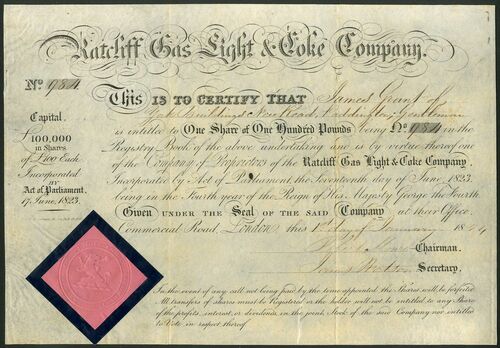 Ratcliff Gas Light & Coke Company.
No. 984
This is to Certify that James Grant of
New Road, Paddington, Gentleman
is entitled to One Share of One Hundred Pounds being No. 984 in the
Registry Book of the above undertaking and is by virtue thereof one
of the Company of Proprietors of the Ratcliff Gas Light & Coke Company.
Incorporated by Act of Parliament, the Seventeenth day of June 1823.
being in the Fourth year of the Reign of His Majesty George the Fourth
Given under the Seal of the said Company at their Office,
Commercial Road, London, this day of January 1844
Chairman.
James Secretary.
Capital.
£100,000
in Shares
of £100 Each
Incorporated
BY
Act of Parliament.
17, June, 1823.
In the event of any call not being paid by the time appointed the Shares will be forfeited
All transfers of shares must be Registered or the holder will not be entitled to any Share
of the profits, interest, or dividends, in the joint Stock of the said Company nor entitled
to Vote in respect thereof